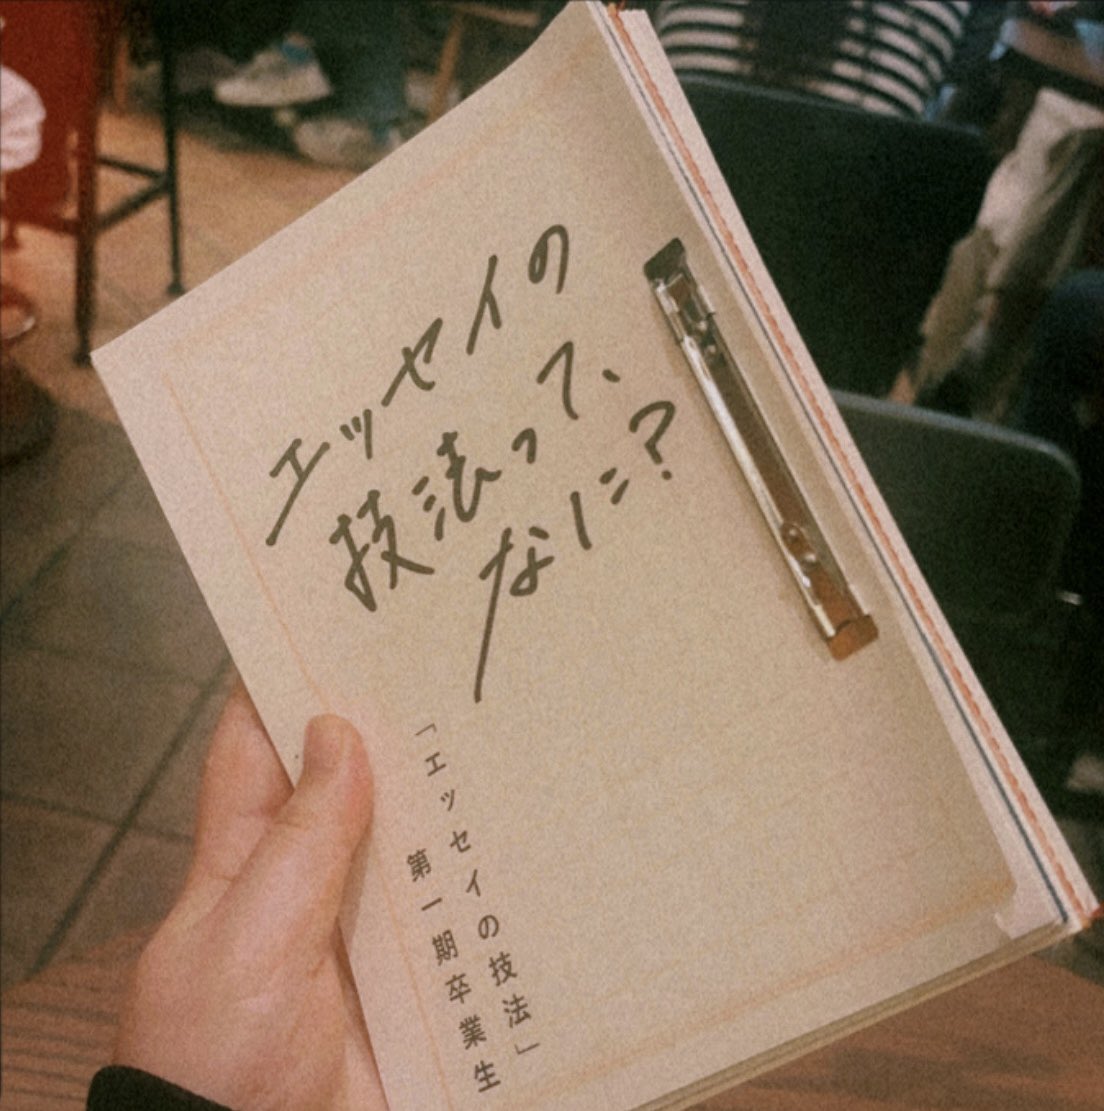 エッセイの
技法って、
なに?
「エッセイの技法」
第一期卒業生